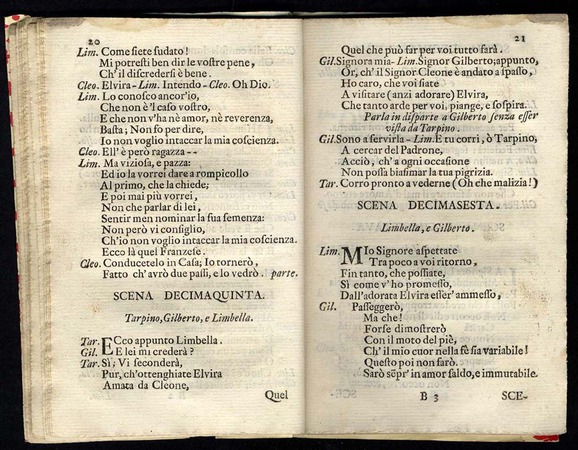 20
Lim. Come siete sudato!
Mi potresti ben dir le vostre pene,
Ch'il discredersi è bene.
Cleo. Elvira - Lim. Intendo - Cleo. Oh Dio.
Lim. Lo conosco ancor'io,
Che non è 'l caso vostro,
E che non v'ha nè amor, nè reverenza,
Basta; Non fo per dire,
Io non voglio intaccar la mia coscienza.
Cleo. Ell' è però ragazza --
Lim. Ma viziosa, e pazza:
Ed io la vorrei dare a rompicollo
Al primo, che la chiede;
E poi mai più vorrei,
Non che parlar di lei,
Sentir men nominar la sua semenza:
Non però vi consiglio,
Ch'io non voglio intaccar la mia coscienza.
Ecco là quel Franzese.
Cleo. Conducetelo in Casa; Io tornerò,
Fatto ch' avrò due passi, e lo vedrò. parte.
SCENA DECIMAQUINTA.
Tarpino, Gilberto, e Limbella.
Tar. ECco appunto Limbella.
Gil. E lei mi crederà?
Tar. Sì; Vi seconderà,
Pur, ch'ottenghiate Elvira
Amata da Cleone,
Quel
21
Quel che può far per voi tutto farà.
Gil. Signora mia- Lim. Signor Gilberto; appunto,
Or, ch' il Signor Cleone è andato a spasso,
Ho caro, che voi siate
A visitare (anzi adorare) Elvira,
Che tanto arde per voi, piange, e sospira.
Parla in disparte a Gilberto senza esser
vista da Tarpino.
Gil. Sono a servirla - Lim. E tu corri, ò Tarpino,
A cercar del Padron;
Acciò, ch' a ogni occasione
Non possa biasimar la tua pigrizia.
Tar. Corro pronto a vederne (Oh che malizia!)
SCENA DECIMASESTA.
Limbella, e Gilberto.
Lim. MIo Signore aspettate
Tra poco a voi ritorno,
Fin tanto, che possiate,
Sì come v'ho promesso,
Dall'adorata Elvira esser' ammesso,
Gil. Passeggerò,
Ma che!
Forse dimostrerò
Con il moto del piè,
Ch' il mio cuor nella fè sia variabile!
Questo poi non sarò.
Sarò sẽpr' in amor saldo, e immutabile.
B 3
SCE-